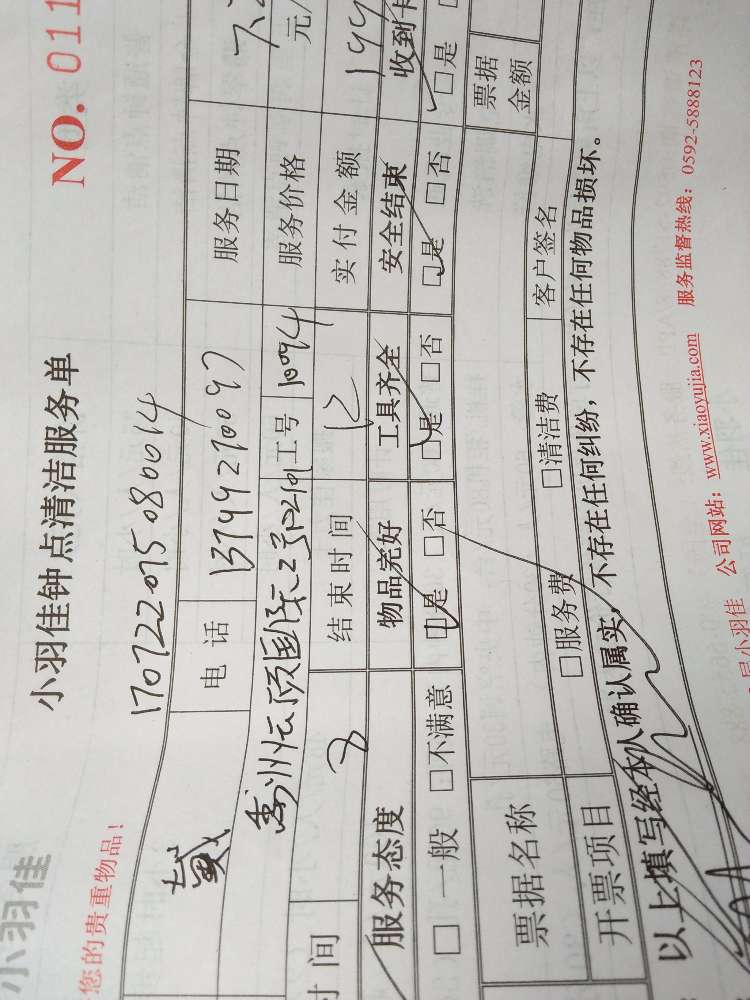 小羽佳
小羽佳钟点清洁服务单
NO. 011
您的贵重物品!
170722075080014
戴 电话 服务日期
工号 1094 服务价格 元/
时间 8 结束时间 12 实付金额
服务态度 物品完好 工具齐全 安全结束 收到卡
□一般 □不满意 □是 □否 □是 □否 □是 □否 □是
票据名称 票据金额
开票项目 □服务费 □清洁费 客户签名
以上填写经本人确认属实,不存在任何纠纷,不存在任何物品损坏。
小羽佳 公司网站:www.xiaoyujia.com 服务监督热线:0592-5888123